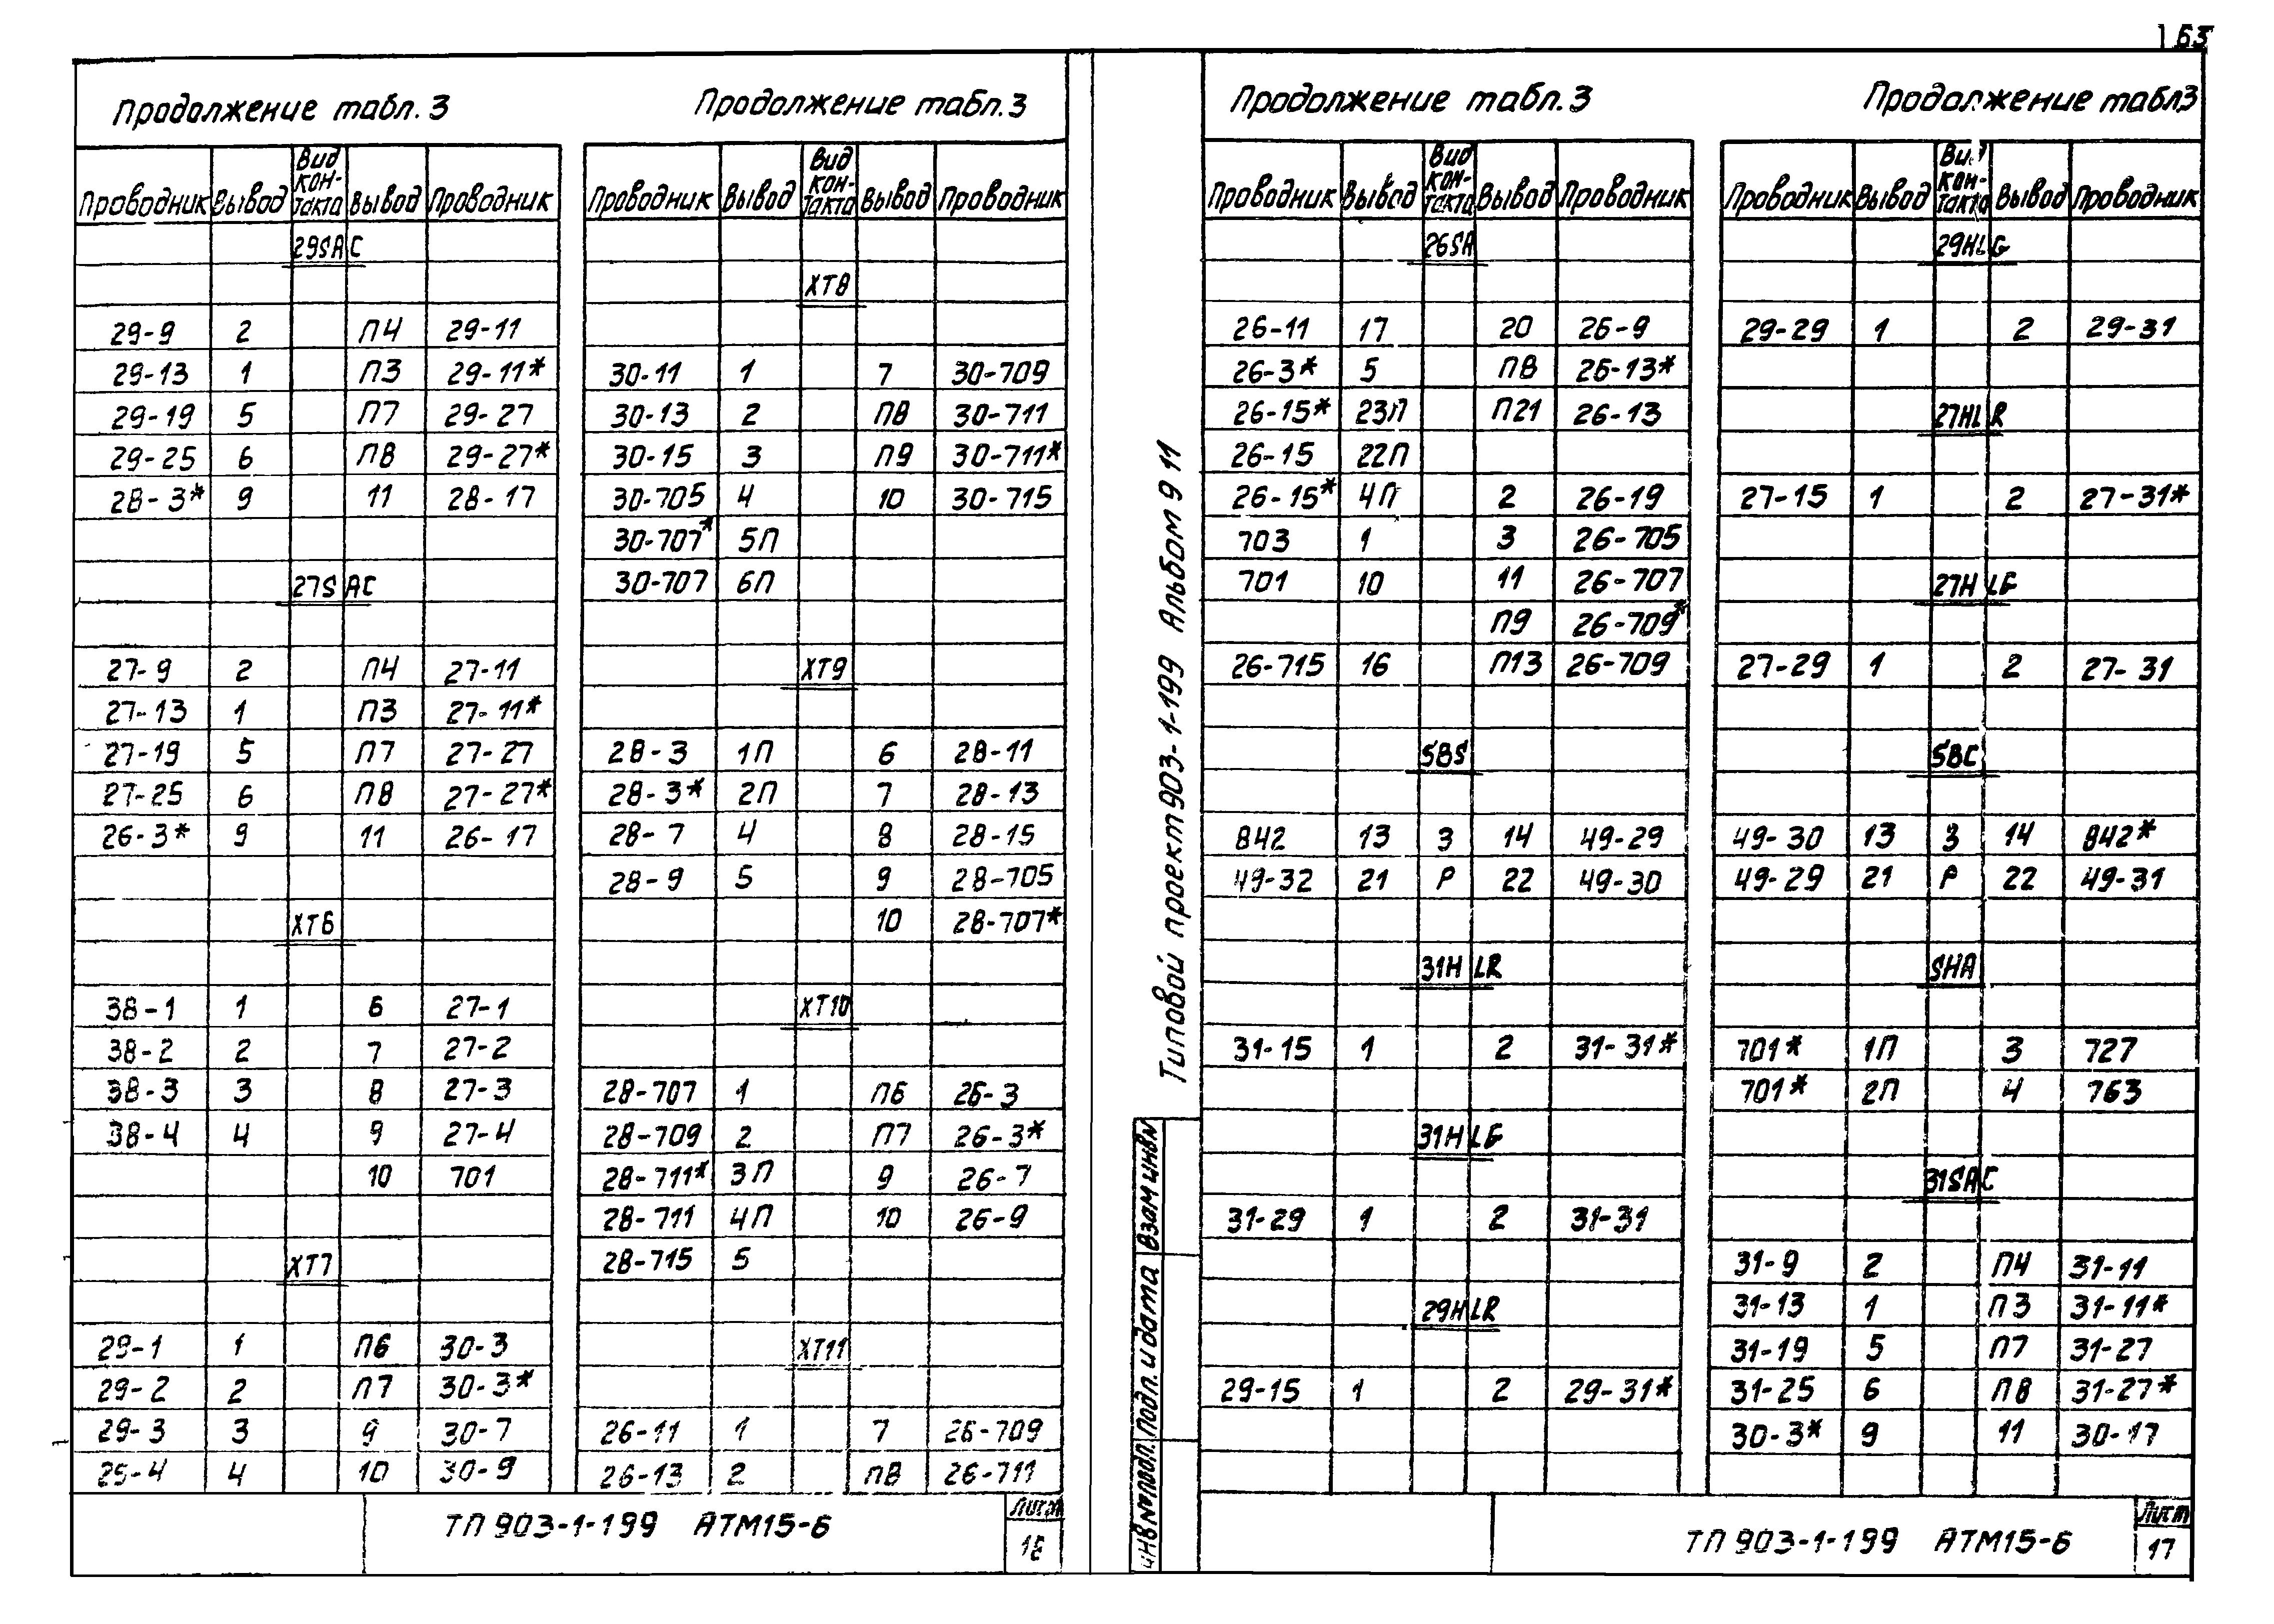 163
Продолжение табл. 3
Проводник Вывод Вид контакта Вывод Проводник
29SAC
29-9 2 П4 29-11
29-13 1 П3 29-11*
29-19 5 П7 29-27
29-25 6 П8 29-27*
28-3* 9 11 28-17
27SAC
27-9 2 П4 27-11
27-13 1 П3 27-11*
27-19 5 П7 27-27
27-25 6 П8 27-27*
26-3* 9 11 26-17
XT6
38-1 1 6 27-1
38-2 2 7 27-2
38-3 3 8 27-3
38-4 4 9 27-4
10 701
XT7
29-1 1 П6 30-3
29-2 2 П7 30-3*
29-3 3 9 30-7
29-4 4 10 30-9
Продолжение табл. 3
Проводник Вывод Вид контакта Вывод Проводник
XT8
30-11 1 7 30-709
30-13 2 П8 30-711
30-15 3 П9 30-711*
30-705 4 10 30-715
30-707* 5П
30-707 6П
XT9
28-3 1П 6 28-11
28-3* 2П 7 28-13
28-7 4 8 28-15
28-9 5 9 28-705
10 28-707*
XT10
28-707 1 П6 26-3
28-709 2 П7 26-3*
28-711* 3П 9 26-7
28-711 4П 10 26-9
28-715 5
XT11
26-11 1 7 26-709
26-13 2 П8 26-711
ТП 903-1-199 АТМ15-6
Лист
16
Типовой проект 903-1-199 Альбом 9 11
Инв № подл. Подп. и дата Взам инв №
Продолжение табл. 3
Проводник Вывод Вид контакта Вывод Проводник
26SA
26-11 17 20 26-9
26-3* 5 П8 26-13*
26-15* 23П П21 26-13
26-15 22П
26-15* 4П 2 26-19
703 1 3 26-705
701 10 11 26-707
П9 26-709*
26-715 16 П13 26-709
SBS
842 13 З 14 49-29
49-32 21 Р 22 49-30
31HLR
31-15 1 2 31-31*
31HLG
31-29 1 2 31-31
29HLR
29-15 1 2 29-31*
Продолжение табл 3
Проводник Вывод Вид контакта Вывод Проводник
29HLG
29-29 1 2 29-31
27HLR
27-15 1 2 27-31*
27HLG
27-29 1 2 27-31
SBC
49-30 13 З 14 842*
49-29 21 Р 22 49-31
SHA
701* 1П 3 727
701* 2П 4 763
31SAC
31-9 2 П4 31-11
31-13 1 П3 31-11*
31-19 5 П7 31-27
31-25 6 П8 31-27*
30-3* 9 11 30-17
ТП 903-1-199 АТМ15-6
Лист
17